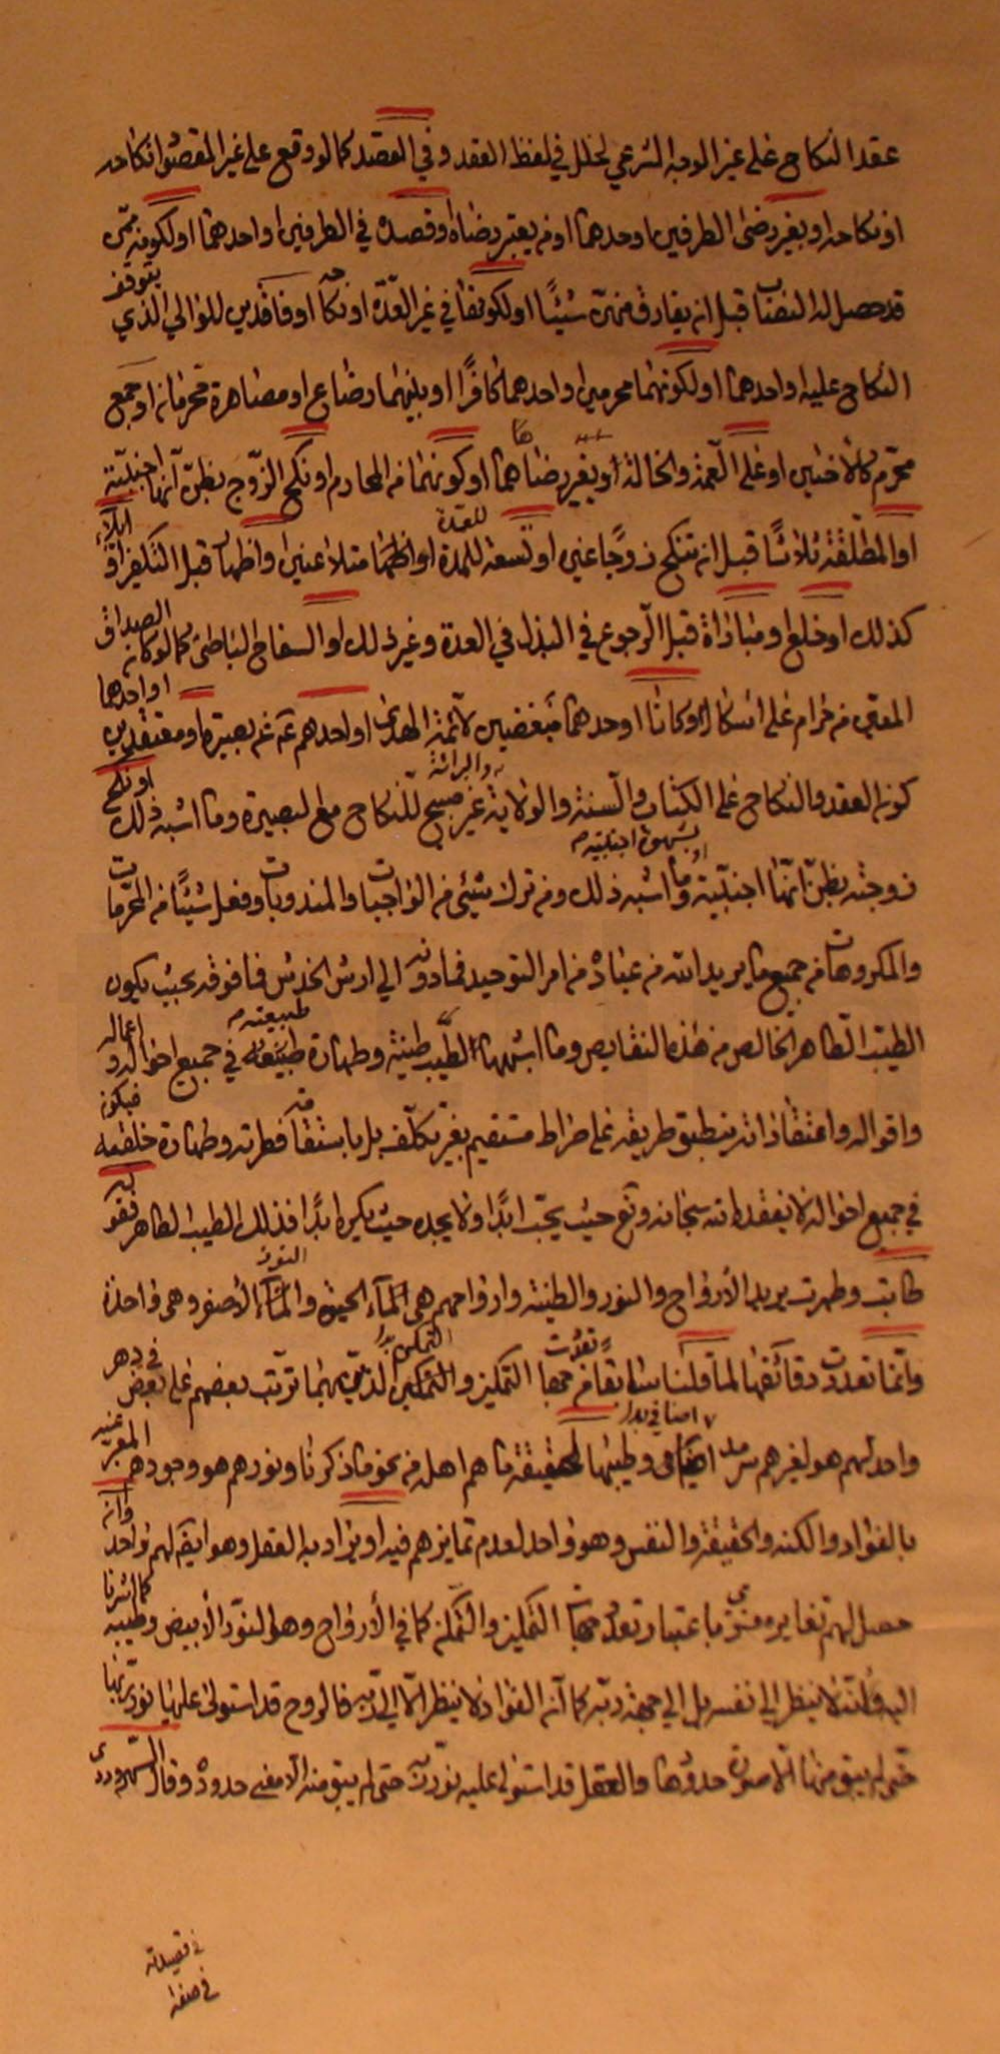 عقد النكاح على غير الوجه الشرعي لخلل في لفظ العقد وفي القصد كما لو وقع على غير المقصود نكاحه
او نكاحها او بغير رضى الطرفين او احدهما او من يعتبر رضاه او قصده في الطرفين او احدهما او لكونه ممن
قد حصل له النصاب قبل ان يفارق منهن شيئا او لكونها في غير العدة او نكاحه او فاقدين للوالي الذي يتوقف
النكاح عليه او احدهما او لكونهما محرمين او احدهما كافرا او بينهما رضاع او مصاهرة محرمانه او جمع
محرم كالأختين او على العمة والخالة او بغير رضاهما او كونهما من المحارم او نكح الزوج بظن انها اجنبية
او المطلقة ثلاثا قبل ان تنكح زوجا غيره او تسعة للعدة ابدا او متلاعنين واظهار قبل التكفير او
كذلك او خلع او مباراة قبل الرجوع في البذل في العدة وغير ذلك او السفاح الباطن كما لو كان الصداق
المعين من حرام على اشكال او كانا او احدهما مبغضين لأئمة الهدى او احدهم عن غير بصيرة او معتقدين او احدهما
كون العقد والنكاح على الكتاب والسنة والولاية والبرائة غير مبيح للنكاح مع البصيرة وما اشبه ذلك او نكح
زوجته بظن انها اجنبية او بشهوة اجنبية وما اشبه ذلك ومن ترك شيئ من الواجبات والمندوبات وفعل شيئا من المحرمات
والمكروهات من جميع ما يريد الله من عباده من امر التوحيد فما دونه الى ارش الخدش فما فوقه بحيث يكون
الطيب الطاهر الخالص من هذه النقايص وما اشبهها لطيب طينته وطهارة طبيعته في جميع احواله و اعماله
واقواله واعتقاداته ينطبق طريقه على صراط مستقيم بغير تكلف بل باستقامة فطرته وطهارة خلقته فيكون
في جميع احواله لا يفقده الله سبحانه وتع حيث يحب ابدا ولا يجده حيث يكره ابدا فذلك الطيب الطاهر فقوله
طابت وطهرت يريد الأرواح والنور والطينة وارواحهم هي الماء والماء الأصفر وهي واحدة
وانما تعددت دقائقها لما قلنا التمكين والتمكن الذين بهما ترتب بعضهم على بعض في دهر
واحد لهم هو لغيرهم سرمد وطينتها لحقيقة ما هم اهله من نحو ما ذكرنا ونورهم هو وجودهم المعبر عنه
بالفؤاد والكنه والحقيقة والنفس وهو واحد لعدم تمايزهم فيه او يراد به العقل وهو ايضا لهم واحد وانه
حصل لهم تغاير معنوي باعتبار تعدد جهات التمكين والتمكن كما في الأرواح وهو النور الأبيض وطيبه كما اشرنا
اليه لا ينظر الى نفسه بل الى جهة ربه كما ان الفؤاد لا ينظر الا الى ربه فالروح قد استولى عليها نور ربها
حتى لم يبق منها الا صورة حدودها والعقل قد استولى عليه نور ربه حتى لم يبق منه الا معنى حدوده وقال السهروردي
في قصيدته
في صفة